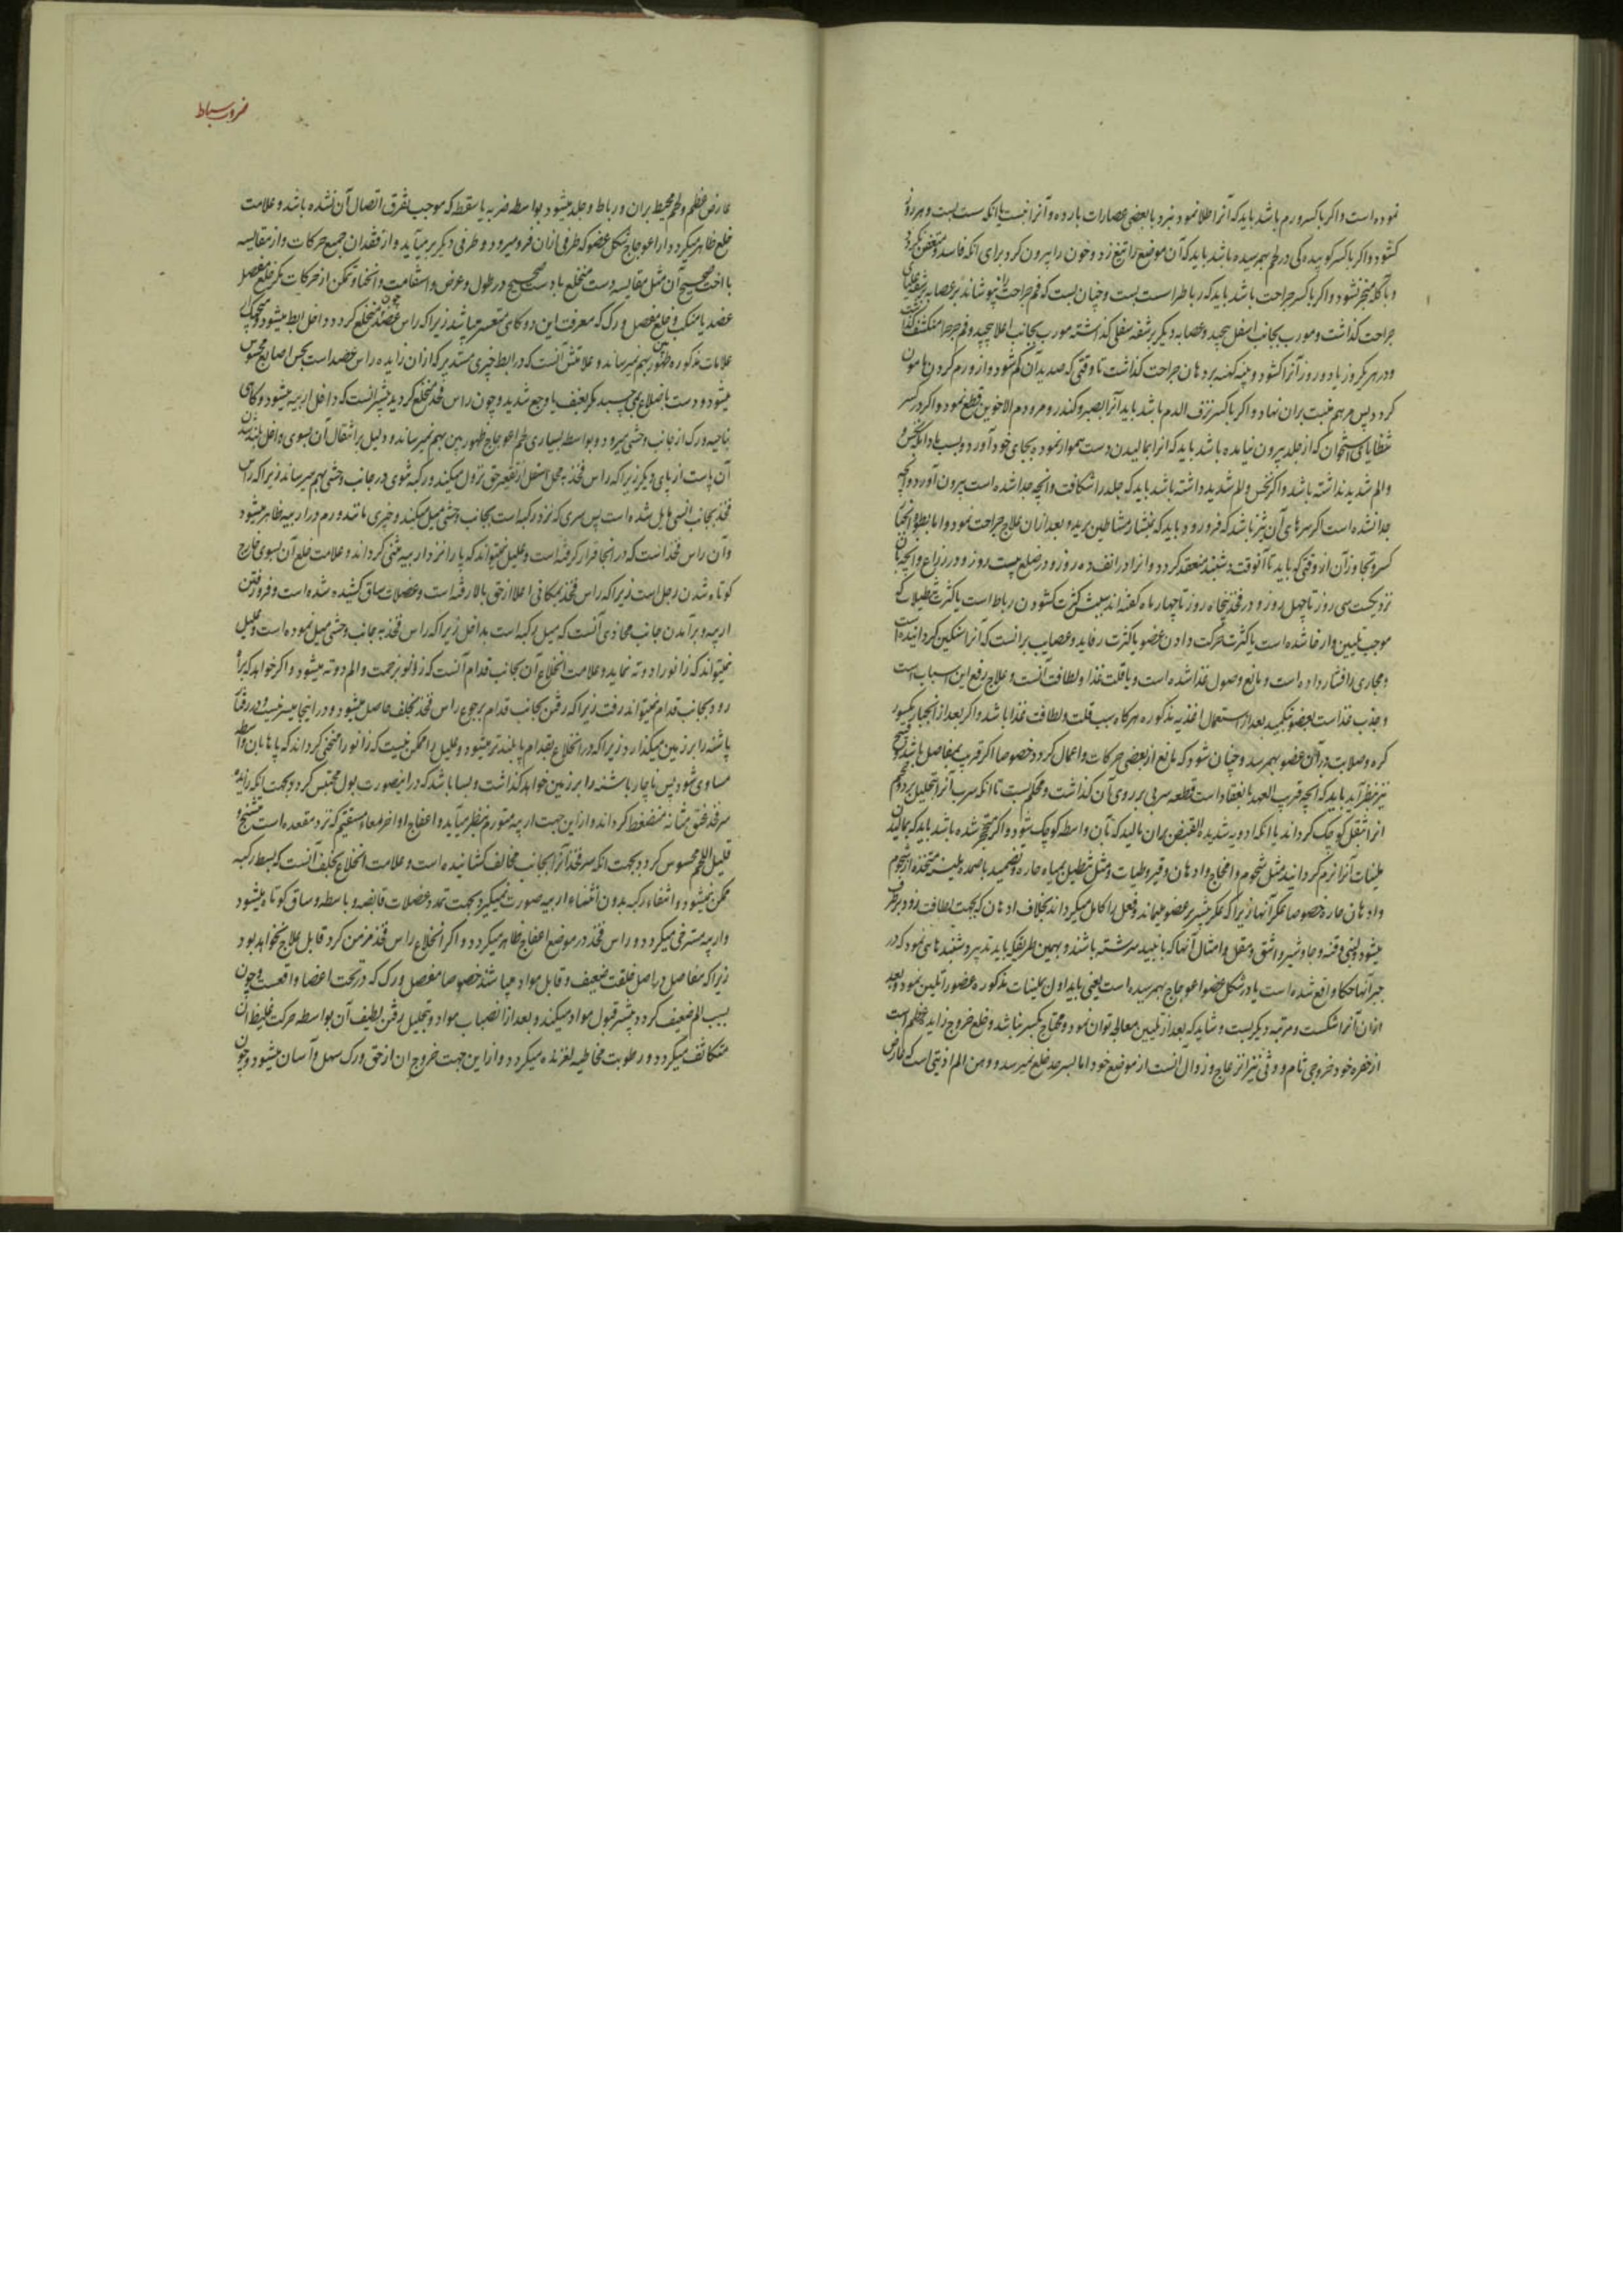 نموده است و اکر با کسر ورم باشد باید که آنرا طلا نمود بنبرد با بعضی عصارات بارده و آنرا نبست یا انکه سست بست و هر روز
کشود و اکر با کسر کوبیده کی در لحم بهمرسیده باشد باید که آن موضع را تیغ زد و خون را بیرون کرد برای انکه فاسد و متعفن نکردد
و باکله منجر نشود و اکر با کسر جراحت باشد باید که رباط را سست بست و چنان بست که فم جراحت را نپوشاند
جراحت کذاشت و مورب بجانب اسفل پیچد و عصابه دیکر بر شفه سفلی کذاشته مورب بجانب اعلا پیچید و فم جراحت
و در هر یکروز یا دو روز آنرا کشود و پنبه کهنه بر دهان جراحت کذاشت تا وقتی که صدید آن کم شود و از ورم کردن مامون
کردد پس مرهم مثبت بران نهاد و اکر با کسر نزف الدم باشد باید آنرا بصبر و کندر و مر و دم الاخوین قطع نمود و اکر در کسر
شظایای استخوان که از جلد بیرون نیامده باشد باید که انرا بمالیدن دست هموار نموده بجای خود آورد و بست
و الم شدید نداشته باشد و اکر نخس و الم شدید داشته باشد باید که جلد را شکافت و انچه جدا شده است بیرون آورد و انچه
جدا نشده است اکر سرهای آن تیز باشد که فرو رود باید که بمنشار مشاطین برید و بعد ازان علاج جراحت نمود و اما بطوء انجبار
کسر و تجاوز آن از وقتی که باید تا آنوقت دشبند منعقد کردد و انرا در انف ده روز و در ضلع بیست روز و در ذراع و انچه بان
نزدیکست سی روز تا چهل روز و در فخذ پنجاه روز تا چهار ماه کفته اند سببش کثرت کشودن رباط است یا کثرت تنطیلات که
موجب تلیین و ارخا شده است یا کثرت حرکت دادن عضو یا کثرت رفاید و عصایب برانست که آنرا سنکین کردانیده است
و مجاری را فشار داده است و مانع وصول غذا شده است و یا قلت غذا و لطافت آنست و علاج رفع این اسباب است
و جذب غذاست بعضو بتکمید بعد از استعمال اغذیه مذکوره هرکاه سبب قلت و لطافت غذا باشد و اکر بعد از انجبار کسور
کره و صلابت دران عضو بهمرسد و چنان شود که مانع از بعضی حرکات و اعمال کردد خصوصا اکر قریب بمفاصل باشد
نیز بنظر آید باید که انچه قریب العهد بانعقاد است قطعه سربی بر روی آن کذاشت و محکم بست تا انکه سرب آنرا بتحلیل برد و حجم
انرا بثقل کوچک کرداند یا انکه ادویه شدیدة القبض بران مالید که بآن واسطه کوچک شود و اکر متحجر شده باشد باید که بمالیدن
ملینات آنرا نرم کردانید مثل شحوم و امخاخ و ادهان و قیروطیات و مثل تنطیل بمیاه حاره و تضمید باضمده ملینه متخذه از شحوم
و ادهان حاره خصوصا عکر آنها زیرا که عکر بیشتر بر عضو میماند و فعل را کامل میکرداند بخلاف ادهان که بجهت لطافت زود برطرف
میشود و لبنی و قنه و جاوشیر و اشق و مقل و امثال آنها که بانبید سرشته باشند و بهمین طریقکه باید تدبیر دشبندهائی نمود که در
جبر آنها خطا واقع شده است یا در شکل عضو اعوجاج بهمرسیده است یعنی باید اول بملینات مذکوره عضو را تلیین نمود و بعد
ازان آنرا شکست و مرتبه دیکر بست و شاید که بعد از تلیین معالجه توان نمود و محتاج بکسر نباشد و خلع خروج زاید عظم است
از حفره خود خروجی تام و وثی نیز انزعاج و زوال آنست از موضع خود اما بسرحد خلع نمیرسد و وهن الم اذیتی است که عارض
ضروب سیاط
عارض عظم و لحم محیط بران و رباط و جلد میشود بواسطه ضربه یا سقطه که موجب تفرق اتصال آن نشده باشد و علامت
خلع ظاهر میکردد از اعوجاج شکل عضو که طرفی ازان فرو میرود و طرفی دیکر برمیآید و از فقدان جمیع حرکات و از مقایسه
با اخت صحیح آن مثل مقایسه دست منخلع با دست صحیح در طول و عرض و استقامت و انحنا و تمکن از حرکات مکر خلع مفصل
عضد با منکب و خلع مفصل ورک که معرفت این دو کاهی متعسر میباشد زیرا که راس عضد چون منخلع کردد و داخل ابط میشود
علامات مذکوره ظهور بهم نمیرساند و علامتش آنست که در ابط چیزی مستدیر که ازان زایده راس عضد است بجس اصابع محسوس
میشود و دست باضلاع نمی چسبد مکر بعنف با وجع شدید و چون راس فخذ منخلع کردید بیشتر آنست که داخل اربیه میشود و کاهی
بناحیه ورک از جانب وحشی میرود و بواسطه بسیاری لحم اعوجاج ظهور بین بهم نمیرساند و دلیل بر انتقال آن بسوی داخل بلند شدن
آن پاست از پای دیکر زیرا که راس فخذ به محل اسفل از نقیعه حق نزول میکند و رکبه نتوی در جانب وحشی بهم میرساند زیرا که راس
فخذ بجانب انسی مایل شده است پس سری که نزد رکبه است بجانب وحشی میل میکند و چیزی مانند ورم در اربیه ظاهر میشود
و آن راس فخذ است که در انجا قرار کرفته است و علیل نمیتواند که پا را نزد اربیه مثنی کرداند و علامت خلع آن بسوی خارج
کوتاه شدن رجل است زیرا که راس فخذ بمکانی اعلا از حق بالا رفته است و عضلات ساق کشیده شده است و فرو رفتن
اربیه و برآمدن جانب محاذی آنست که میل رکبه است بداخل زیرا که راس فخذ به جانب وحشی میل نموده است و علیل
نمیتواند که زانو را دو ته نماید و علامت انخلاع آن بجانب قدام آنست که زانو بزحمت و الم دو ته میشود و اکر خواهد که براه
رود بجانب قدام نمیتواند رفت زیرا که رفتن بجانب قدام برجوع راس فخذ بخلف حاصل میشود و در اینجا میسر نیست و در رفتار
پاشنه را بر زمین میکذارد زیرا که در انخلاع بقدام پا بلندتر میشود و علیل را ممکن نیست که زانو را منحنی کرداند که پاها بان واسطه
مساوی شود پس ناچار پاشنه را بر زمین خواهد کذاشت و بسا باشد که در اینصورت بول محتبس کردد بجهت انکه زایده
سر فخذ عنق مثانه منضغط کرداند و ازاین جهت اربیه متورم بنظر میآید و اعفاج اواخر امعاء مستقیم که نزد مقعده است متشنج و
قلیل اللحم محسوس کردد بجهت انکه سر فخذ آنرا بجانب مخالف کشانیده است و علامت انخلاع بخلف آنست که بسط رکبه
ممکن نمیشود و انثناء رکبه بدون انثناء اربیه صورت نمیکیرد بجهت تمدد عضلات قابضه و باسطه و ساق کوتاه میشود
و اربیه مسترخی میکردد و راس فخذ در موضع اعفاج ظاهر میکردد و اکر انخلاع راس فخذ مزمن کردد قابل علاج نخواهد بود
زیرا که مفاصل در اصل خلقت ضعیف و قابل مواد میباشند خصوصا مفصل ورک که در تحت اعضا واقعست و چون
بسبب الم ضعیف کردد بیشتر قبول مواد میکند و بعد از انصباب مواد و تحلیل رفتن لطیف آن بواسطه حرکت غلیظ ان
متکاثف میکردد و رطوبت مخاطیه لغزنده میکردد و ازاین جهت خروج ان از حق ورک سهل و آسان میشود و چون